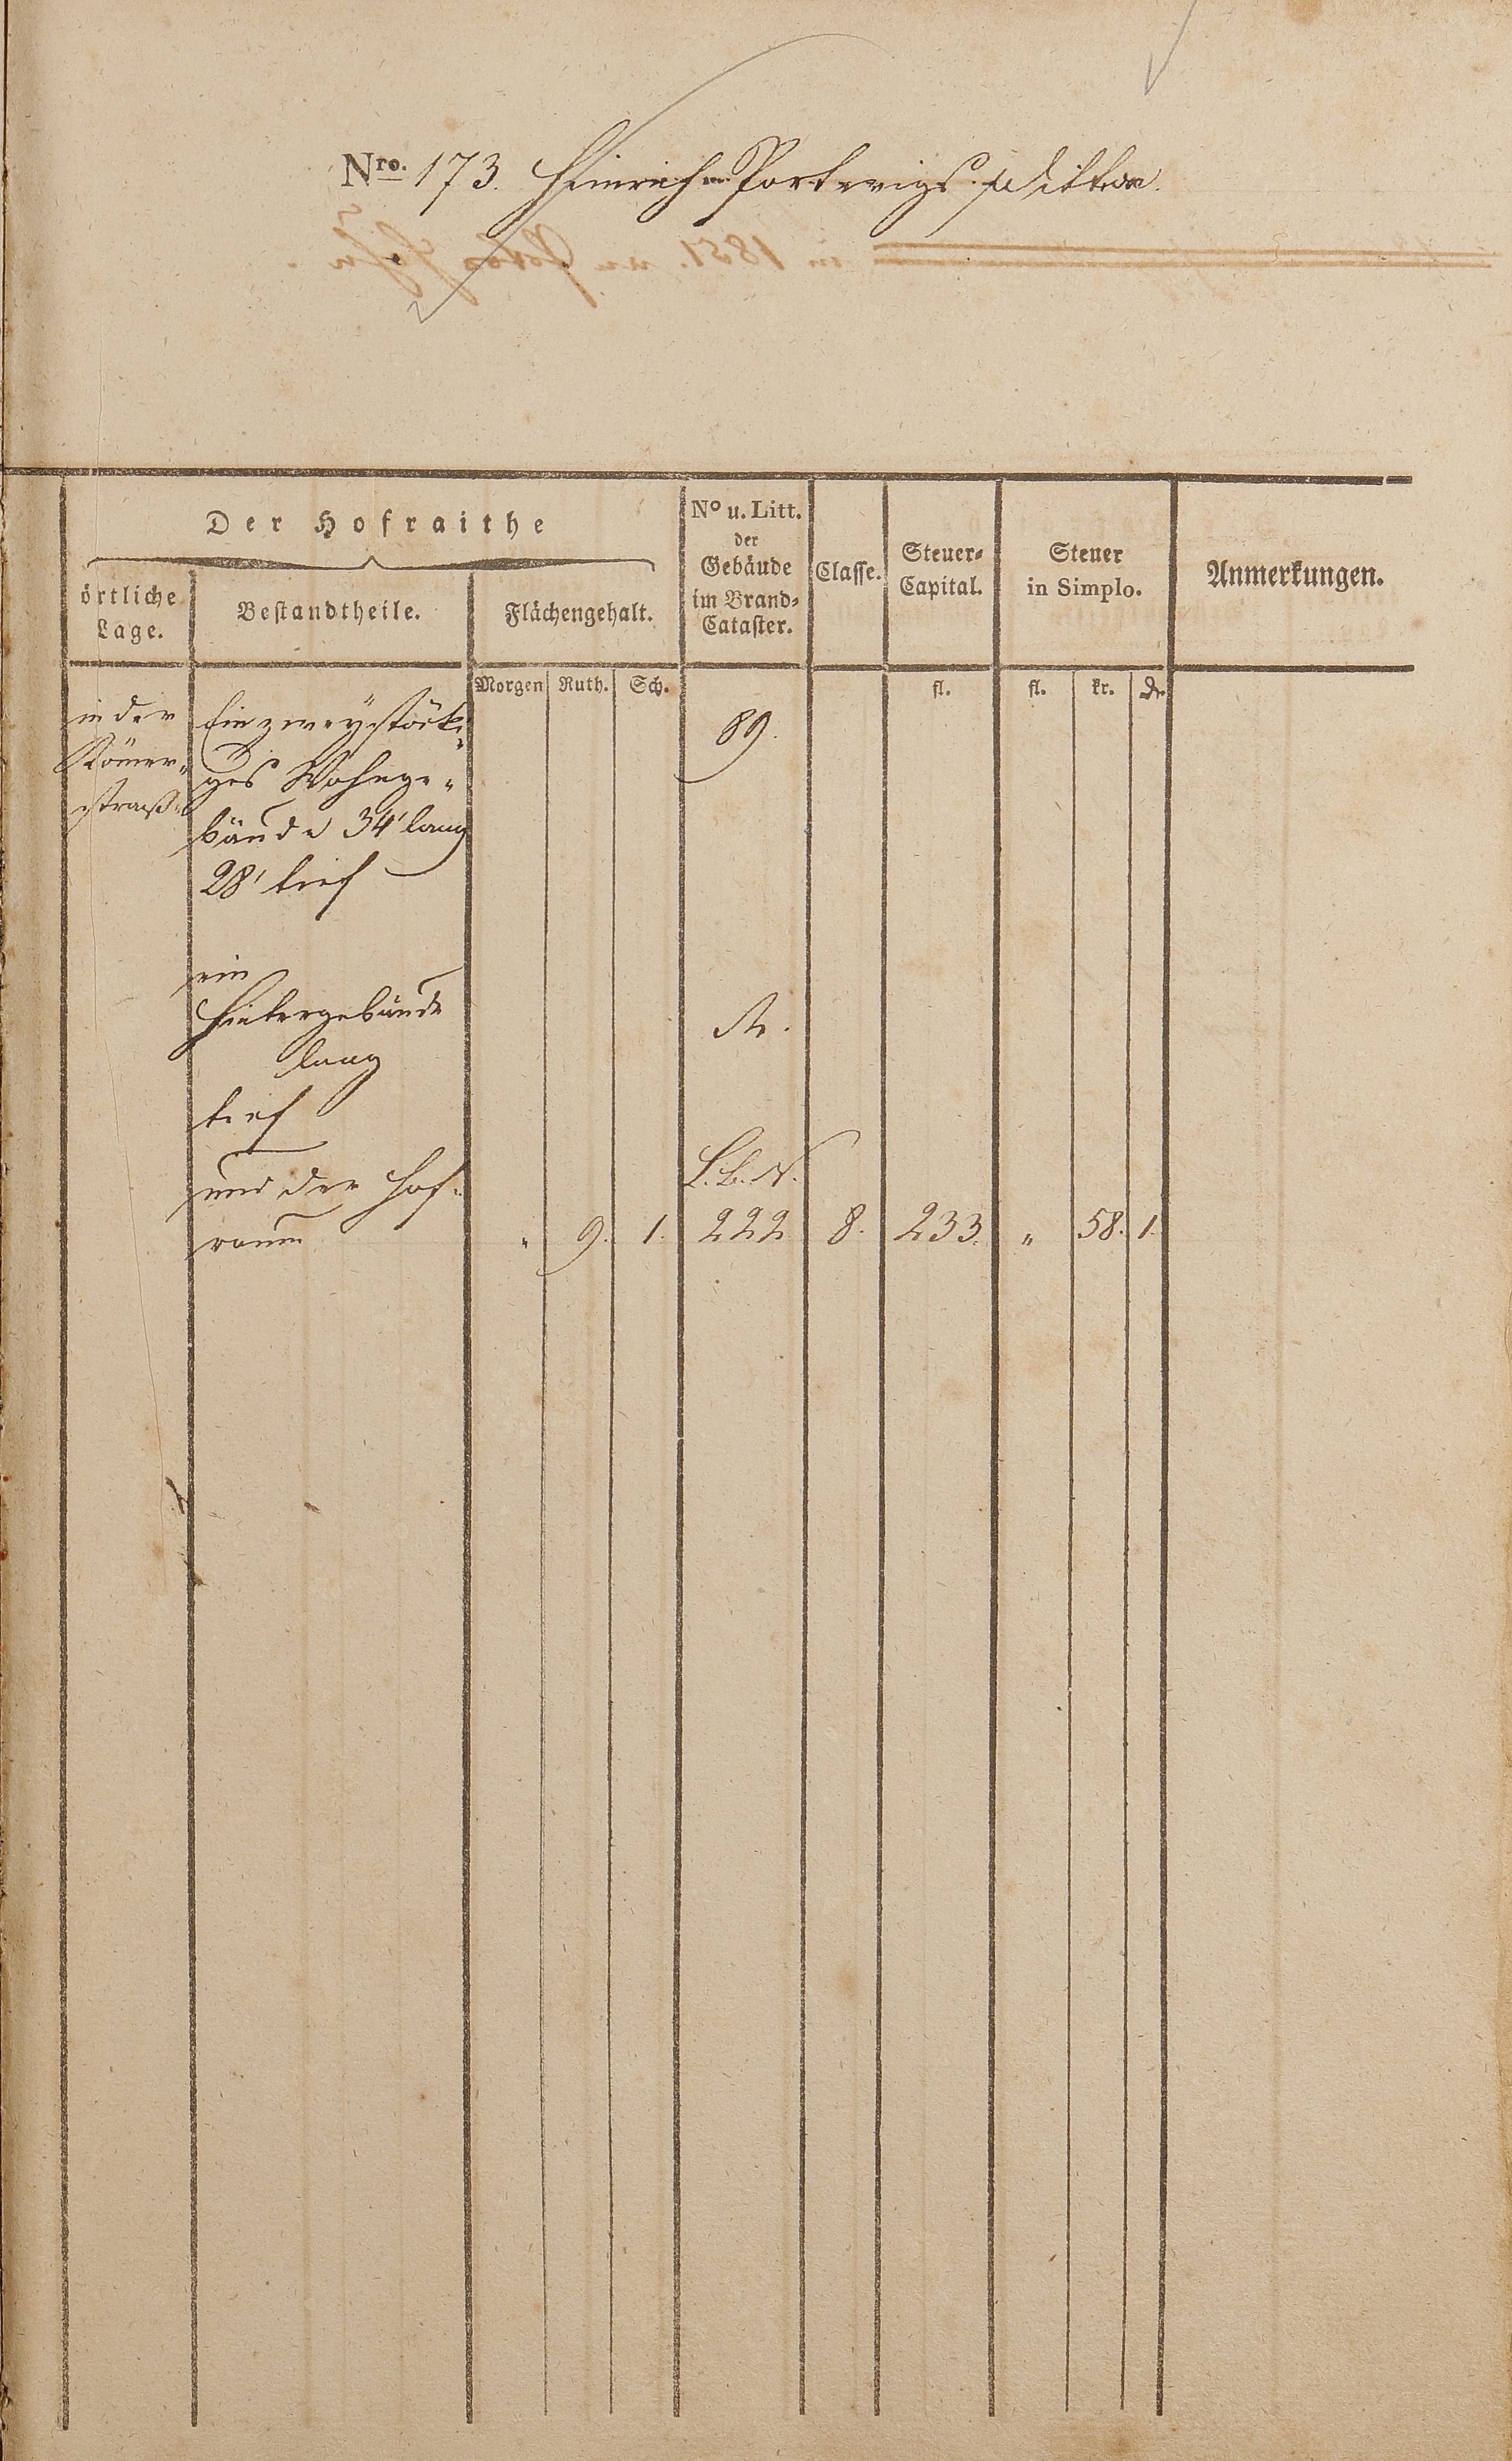 Nro. 173. Heinrich Portwigs Wittwe.
Der Hofraithe
örtliche Lage.
Bestandtheile.
Flächengehalt.
No u. Litt. der Gebäude im Brand-Cataster.
Classe.
Steuer-Capital.
Steuer in Simplo.
Anmerkungen.
Morgen Ruth. Sch. fl. fl. kr. d.
in der
Römer-
straße
Ein zweystöcki-
ges Wohnge-
bäude 34' lang
28' tief
89.
ein
Hintergebäude
lang
tief
und der Hof-
L. b. N.
raum " 9. 1. 222 8. 233. " 58. 1.